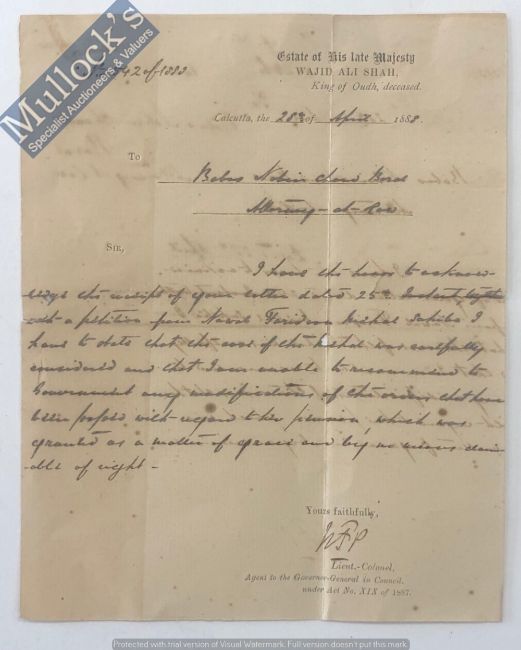 Mullock's
Specialist Auctioneers & Valuers
42 of 1888
Estate of His late Majesty
WAJID ALI SHAH,
King of Oudh, deceased.
Calcutta, the 28th of April 1888.
To
Baboo Nobin Chand Boral
Attorney-at-Law
SIR,
I have the honor to acknow-
ledge the receipt of your letter dated 25th Instant together
with a petition from Nawab Mehal Sahiba I
have to state that the case of this Mehal was carefully
considered and that I am unable to recommend to
Government any modifications of the orders that have
been passed with regard to her pension, which was
granted as a matter of grace and by no means claim-
able of right -
Yours faithfully,
Lieut.-Colonel,
Agent to the Governor-General in Council,
under Act No. XIX of 1887.
Protected with trial version of Visual Watermark. Full version doesn't put this mark.